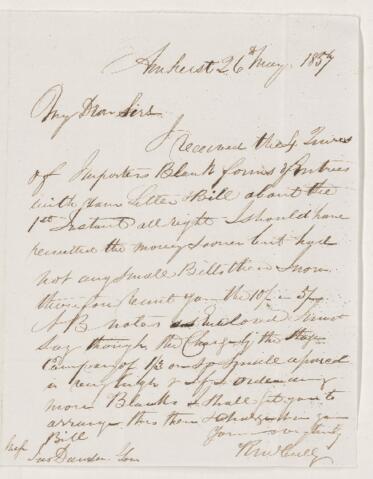 Amherst 26th May. 1857
My Dear Sirs
I received the 4 Quires
of Importers Blank forms Entries
with your Letter & Bill about the
1st Instant all right I should have
remitted the money sooner but had
not any small Bills then I now
remit you the 10/- 5/-
N B notes Enclosed I must
say though the Charge by the Stage
Company of 1/3 on so small a parcel
is very high & if I order any
more Blanks I shall get you to
arrange this then & charge in
Bill
Yours very truly